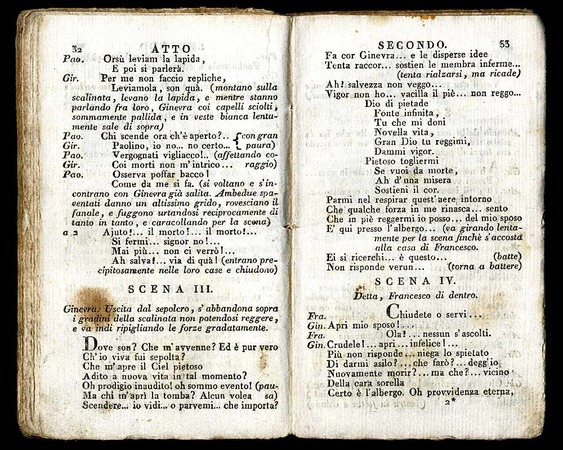 32 ATTO
Pao. Orsù leviam la lapida,
E poi si parlerà.
Gir. Per me non faccio repliche,
Leviamola, son quà. (montano sulla
scalinata, levano la lapida, e mentre stanno
parlando fra loro, Ginevra coi capelli sciolti,
sommamente pallida, e in veste bianca lentu-
mente sale di sopra)
Pao. Chi scende ora ch'è aperto?.. (con gran
Gir. Paolino, io no... no certo... paura)
Pao. Vergognati vigliacco!.. (affettando co-
Gir. Coi morti non m'intrico... raggio)
Pao. Osserva poffar bacco!
Come da me si fa. (si voltano e s'in-
contrano con Ginevra già salita. Ambedue spa-
ventati danno un altissimo grido, rovesciano il
fanale, e fuggono urtandosi reciprocamente di
tanto in tanto, e caracollando per la scena)
a 2 Ajuto!... il morto!... il morto!...
Si fermi... signor no!...
Mai più... non ci verrò!...
Ah salva!... via di quà! (entrano pre-
cipitosamente nelle loro case e chiudono)
SCENA III.
Ginevra: Uscita dal sepolcro, s'abbandona sopra
i gradini della scalinata non potendosi reggere,
e va indi ripigliando le forze gradatamente.
Dove son? Che m'avvenne? Ed è pur vero
Ch'io viva fui sepolta?
Che m'apre il Ciel pietoso
Adito a nuova vita in tal momento?
Oh prodigio inaudito! oh sommo evento! (pau-
Ma chi m'aprì la tomba? Alcun volea sa)
Scendere... io vidi... o parvemi... che importa?
SECONDO. 33
Fa cor Ginevra... e le disperse idee
Tenta raccor... sostien le membra inferme...
(tenta rialzarsi, ma ricade)
Ah! salvezza non veggo...
Vigor non ho... vacilla il piè... non reggo...
Dio di pietade
Fonte infinita,
Tu che mi doni
Novella vita,
Gran Dio tu reggimi,
Dammi vigor.
Pietoso togliermi
Se vuoi da morte,
Ah d'una misera
Sostieni il cor.
Parmi nel respirar quest'aere intorno
Che qualche forza in me rinasca... sento
Che in piè reggermi io posso... del mio sposo
E' qui presso l'albergo... (va girando lenta-
mente per la scena finchè s'accosta
alla casa di Francesco.
Ei si ricerchi... è questo... (batte)
Non risponde verun... (torna a battere)
SCENA IV.
Detta, Francesco di dentro.
Fra. Chiudete o servi...
Gin. Apri mio sposo!...
Fra. Ola!... nessun s'ascolti.
Gin. Crudele!... apri... infelice!...
Più non risponde... niega lo spietato
Di darmi asilo?... che farò?... degg'io
Nuovamente morir?... ma che?... vicino
Della cara sorella
Certo è l'albergo. Oh provvidenza eterna,
2*